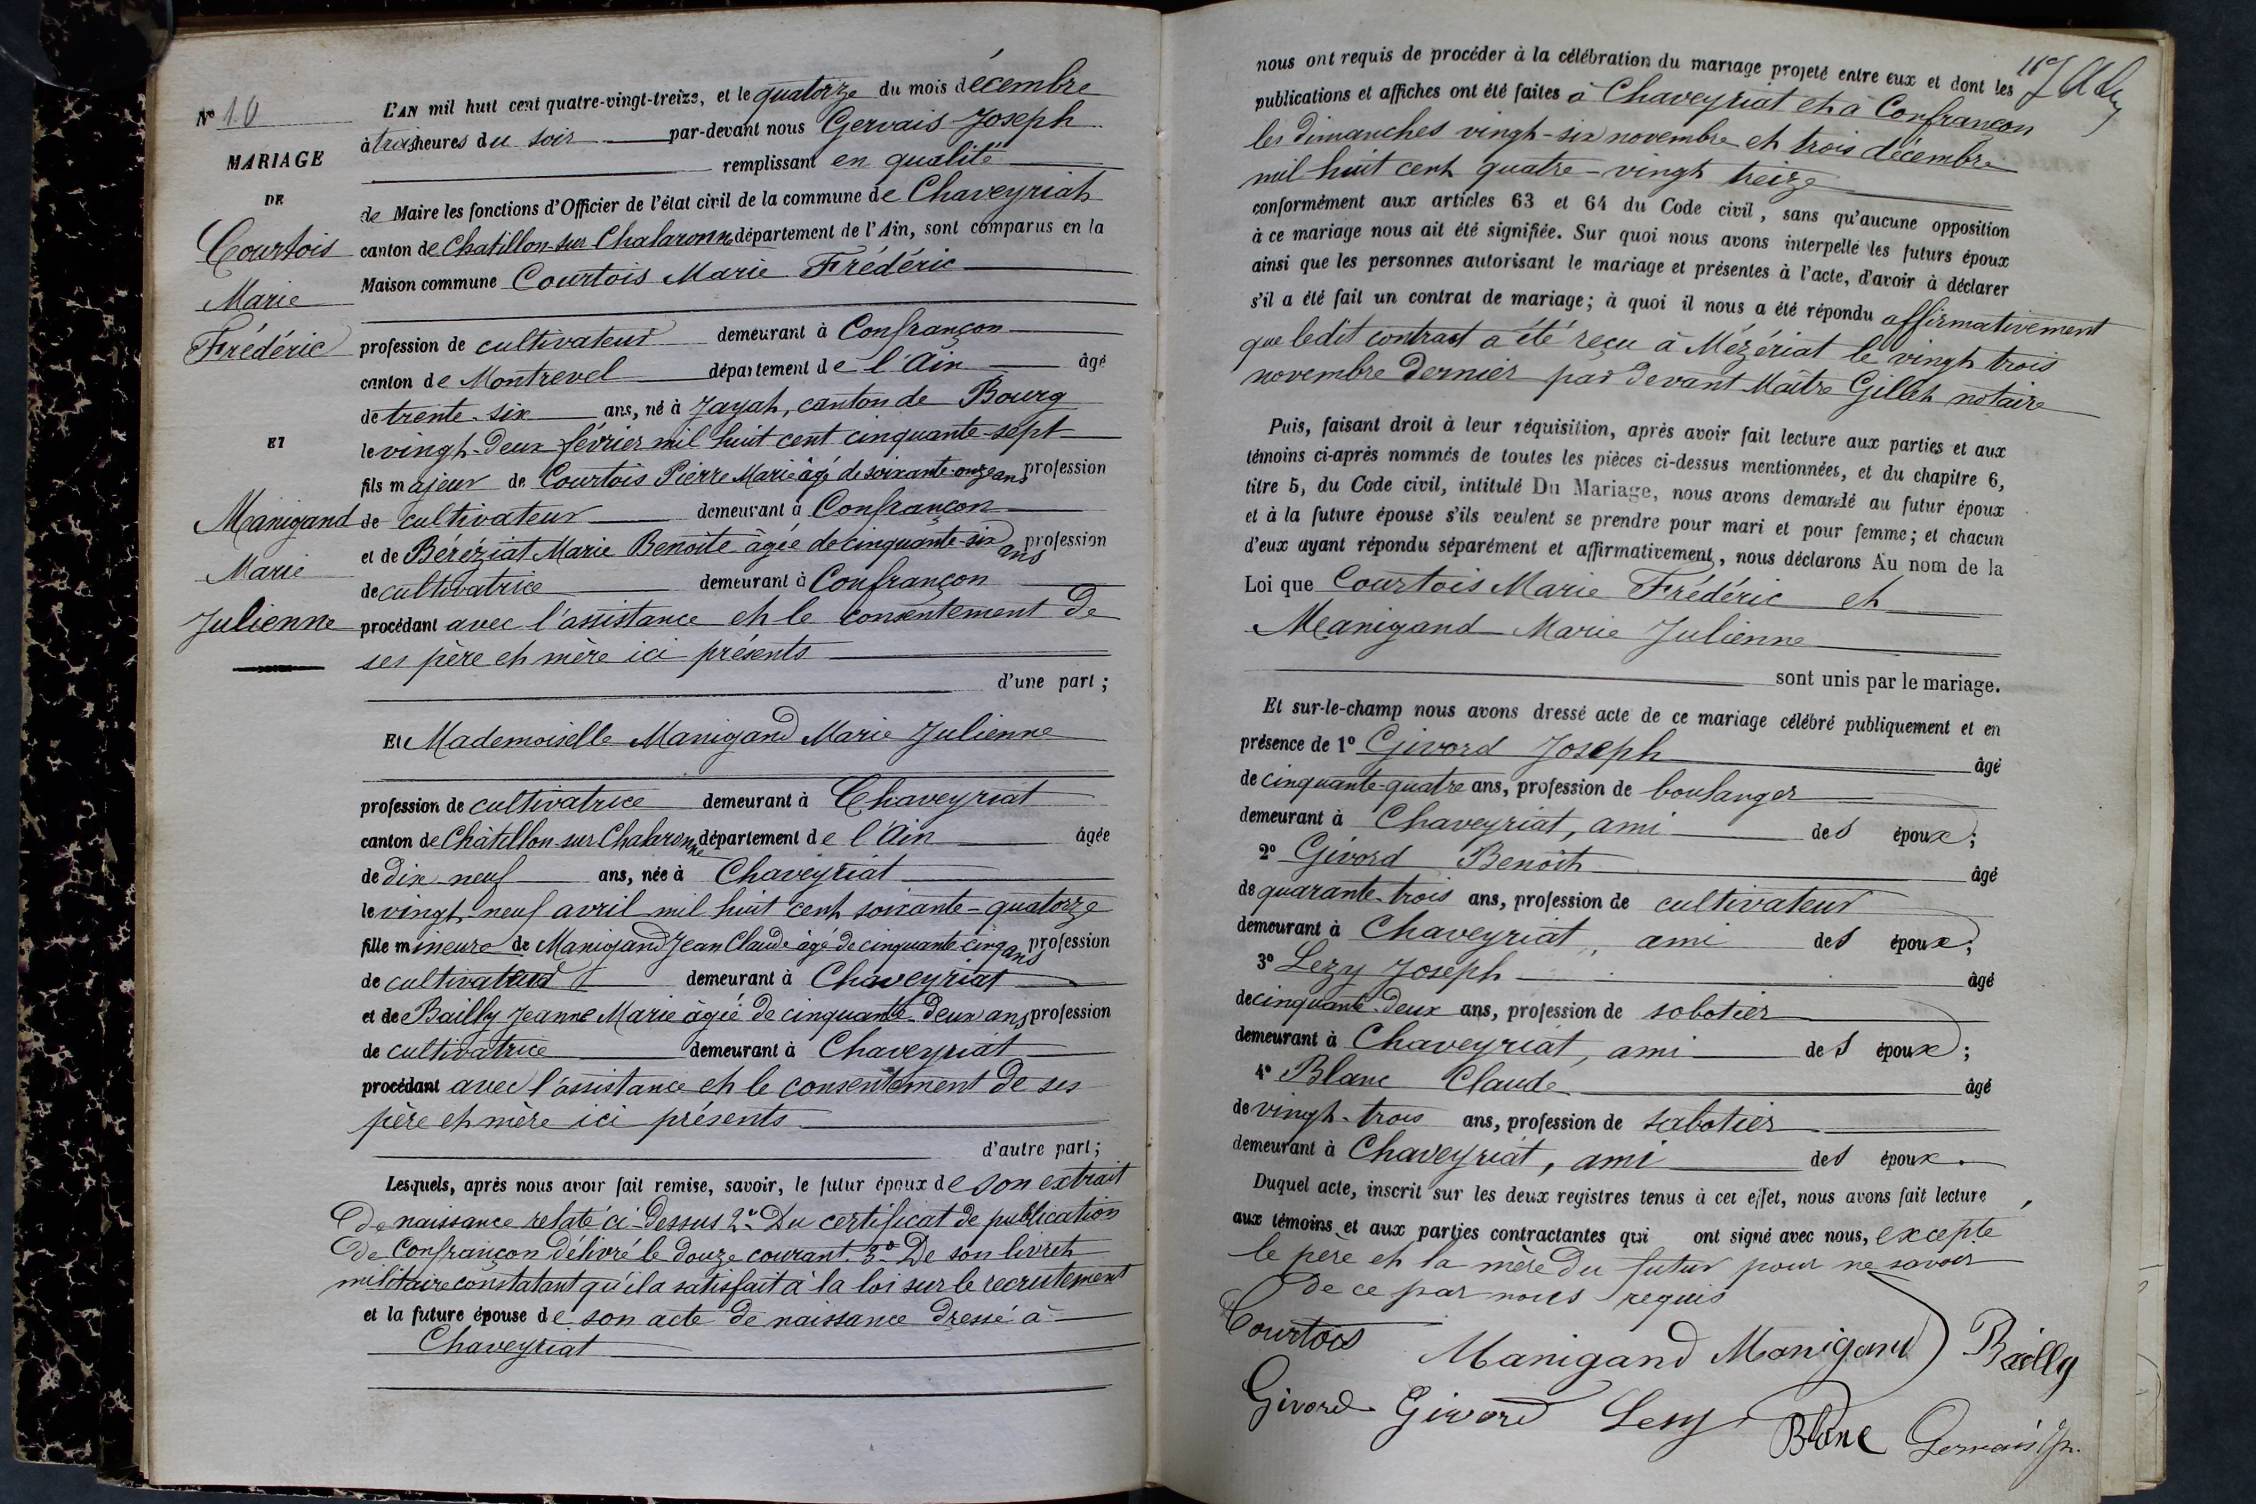 Nº 10
MARIAGE
DE
Courtois
Marie
Frédéric
ET
Manigand
Marie
Julienne
L'AN mil huit cent quatre-vingt-treize, et le quatorze du mois décembre
à trois heures du soir par-devant nous Gervais Joseph
remplissant en qualité
de Maire les fonctions d'Officier de l'état civil de la commune de Chaveyriat
canton de Chatillon-sur Chalaronne département de l'Ain, sont comparus en la
Maison commune Courtois Marie Frédéric
profession de cultivateur demeurant à Confrançon
canton de Montrevel département de l'Ain âgé
de trente-six ans, né à Jayat, canton de Bourg
le vingt-deux février mil huit cent cinquante-sept
fils majeur de Courtois Pierre Marie âgé de soixante-onze ans profession
de cultivateur demeurant à Confrançon
et de Béréziat Marie Benoite âgée de cinquante-six ans profession
de cultivatrice demeurant à Confrançon
procédant avec l'assistance et le consentement de
ses père et mère ici présents
d'une part ;
Et Mademoiselle Manigand Marie Julienne
profession de cultivatrice demeurant à Chaveyriat
canton de Châtillon-sur Chalaronne département de l'Ain âgée
de dix-neuf ans, née à Chaveyriat
le vingt-neuf avril mil huit cent soixante-quatorze
fille mineure de Manigand Jean Claude âgé de cinquante-cinq ans profession
de cultivateur demeurant à Chaveyriat
et de Bailly Jeanne Marie âgée de cinquante-deux ans profession
de cultivatrice demeurant à Chaveyriat
procédant avec l'assistance et le consentement de ses
père et mère ici présents
d'autre part ;
Lesquels, après nous avoir fait remise, savoir, le futur époux de son extrait
de naissance relaté ci-dessus 2º Du certificat de publication
de Confrançon délivré le douze courant. 3º De son livret
militaire constatant qu'il a satisfait à la loi sur le recrutement
et la future épouse de son acte de naissance dressé à
Chaveyriat
nous ont requis de procéder à la célébration du mariage projeté entre eux et dont les
publications et affiches ont été faites à Chaveyriat et à Confrançon
les dimanches vingt-six novembre et trois décembre
mil huit cent quatre-vingt treize
conformément aux articles 63 et 64 du Code civil, sans qu'aucune opposition
à ce mariage nous ait été signifiée. Sur quoi nous avons interpellé les futurs époux
ainsi que les personnes autorisant le mariage et présentes à l'acte, d'avoir à déclarer
s'il a été fait un contrat de mariage ; à quoi il nous a été répondu affirmativement
que ledit contrat a été reçu à Mézériat le vingt trois
novembre dernier par devant Maître Gillet notaire
Puis, faisant droit à leur réquisition, après avoir fait lecture aux parties et aux
témoins ci-après nommés de toutes les pièces ci-dessus mentionnées, et du chapitre 6,
titre 5, du Code civil, intitulé Du Mariage, nous avons demandé au futur époux
et à la future épouse s'ils veulent se prendre pour mari et pour femme ; et chacun
d'eux ayant répondu séparément et affirmativement, nous déclarons Au nom de la
Loi que Courtois Marie Frédéric et
Manigand Marie Julienne
sont unis par le mariage.
Et sur-le-champ nous avons dressé acte de ce mariage célébré publiquement et en
présence de 1º Givord Joseph âgé
de cinquante-quatre ans, profession de boulanger
demeurant à Chaveyriat, ami des époux ;
2º Givord Benoît âgé
de quarante-trois ans, profession de cultivateur
demeurant à Chaveyriat, ami des époux ;
3º Lezy Joseph âgé
de cinquante-deux ans, profession de sabotier
demeurant à Chaveyriat, ami des époux ;
4º Blanc Claude âgé
de vingt-trois ans, profession de sabotier
demeurant à Chaveyriat, ami des époux.
Duquel acte, inscrit sur les deux registres tenus à cet effet, nous avons fait lecture
aux témoins et aux parties contractantes qui ont signé avec nous, excepté
le père et la mère du futur pour ne savoir
de ce par nous requis
Courtois Manigand Manigand Bailly
Givord Givord Lezy Blanc Gervais Jh.